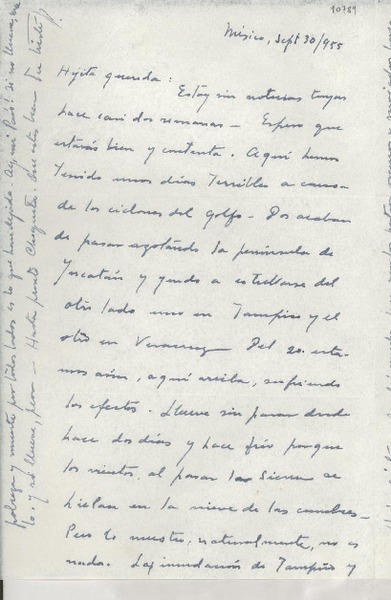 10789
México, Sept 30/955
Hijita querida:
Estoy sin noticias tuyas
hace casi dos semanas — Espero que
estarás bien y contenta. Aquí hemos
tenido unos días terribles a causa
de los ciclones del golfo — Dos acaban
de pasar azotando la península de
Yucatán y yendo a estrellarse del
otro lado uno en Tampico y el
otro en Veracruz Del 2o. esta-
mos aún, aquí arriba, sufriendo
los efectos. Llueve sin parar desde
hace dos días y hace frío porque
los vientos, al pasar la Sierra se
hielan en la nieve de las cumbres —
Pero lo nuestro, naturalmente, no es
nada. La inundación de Tampico y
pobreza y muerte por todos lados es lo que han dejado. Aquí si no llueve,
lo. y si llueve, peor — Hasta pronto Chiquita. Que estés bien Tu